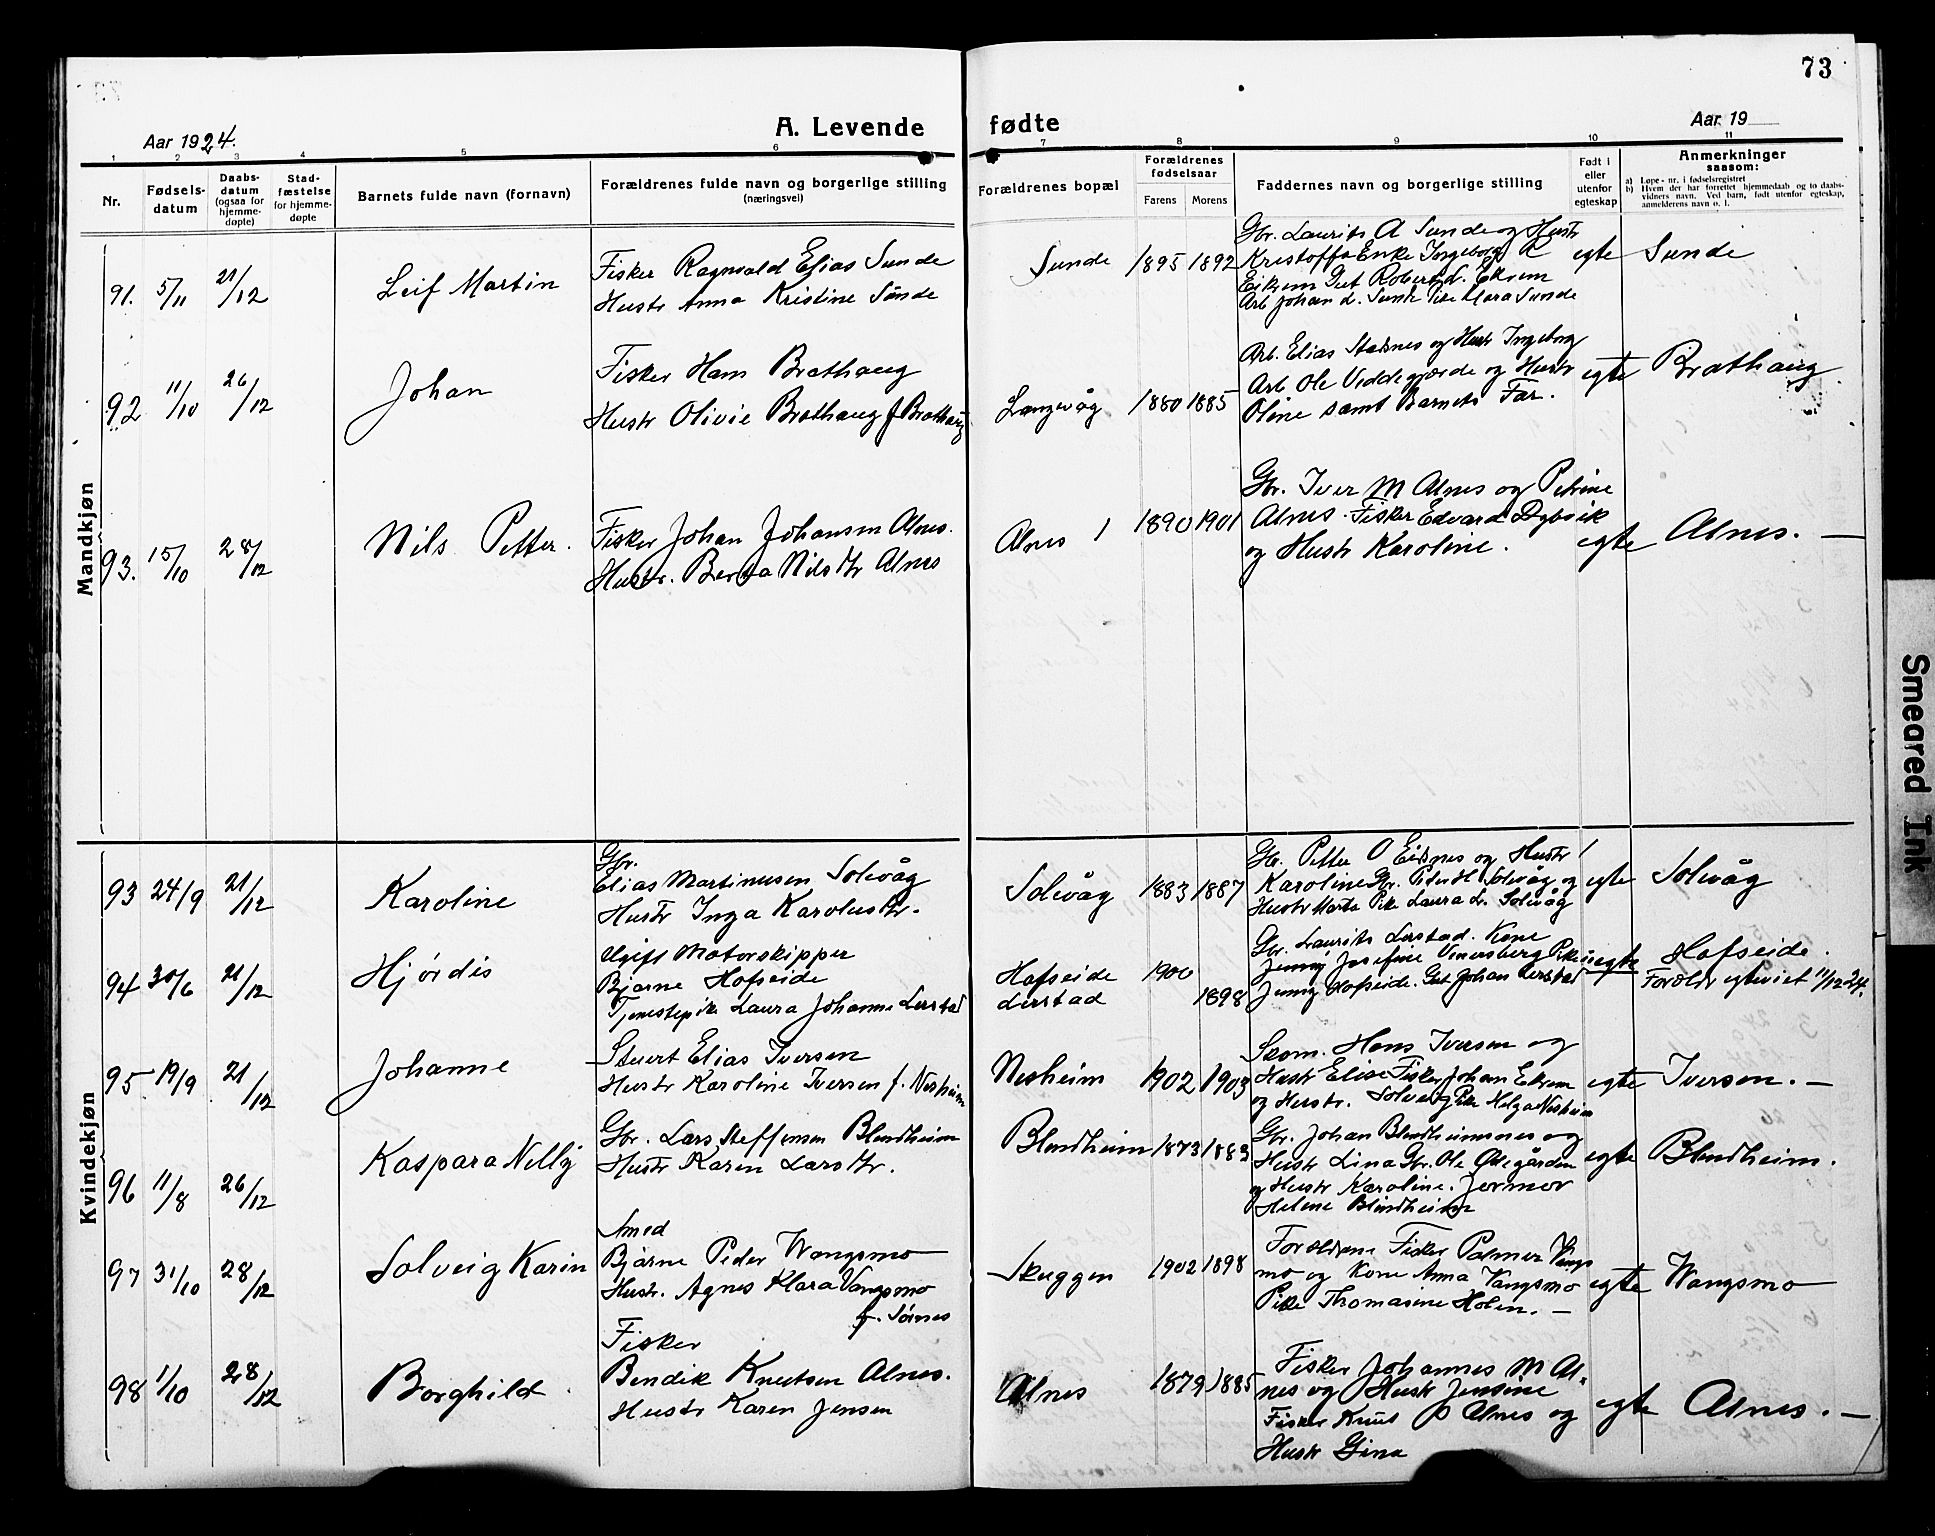 73
Aar 1924.
A. Levende fødte
Aar 19
1 2 3 4 5 6 7 8 9 10 11
Nr.
Fødsels-
datum
Daabs-
datum
(ogsaa for
hjemme-
døpte)
Stad-
fæstelse
for hjemme-
døpte
Barnets fulde navn (fornavn)
Forældrenes fulde navn og borgerlige stilling
(næringsvei)
Forældrenes bopæl
Forældrenes
fødselsaar
Farens Morens
Faddernes navn og borgerlige stilling
Født i
eller
utenfor
egteskap
Anmerkninger
saasom:
a) Løpe-nr. i fødselsregistret
b) Hvem der har forrettet hjemmedaab og to daabs-
vidners navn. Ved barn, født utenfor egteskap,
anmelderens navn o. l.
Mandkjøn
91. 5/11 21/12
Leif Martin
Fisker Ragnvald Elias Sunde
Hustr Anna Kristine Sunde
Sunde
1895 1892
Gbr. Laurits A Sunde og Hustr
Kristoffa Enke Ingeborg K
Eikrem Gut Robert L. Ekrem
Arb Johan L. Sunde Pike Mara Sunde
egte
Sunde
92 11/10 26/12
Johan
Fisker Hans Brathaug
Hustr Olivie Brathaug f Brathaug
Langevåg
1880 1885
Arb. Elias Staknes og Hustr Ingeborg
Arb Ole Veddegjærde og Hustr
Oline samt Barnets Far.
egte
Brathaug
93. 15/10 28/12
Nils Petter.
Fisker Johan Johansen Alnes.
Hustr. Berta Nilsdtr Alnes
Alnes
1890 1901
Gbr. Iver M Alnes og Petrine
Alnes. Fisker Edvard Dybvik
og Hustr Karoline.
egte
Alnes. —
Kvindekjøn
93 24/9 21/12
Karoline
Gbr.
Elias Martinusen Solevåg
Hustr Inga Karolusdtr.
Solevåg
1883 1887
Gbr. Petter O Eidsnes og Hustr
Karoline Gbr. Peder H. Solevåg og
Hustr Marta Pike Laura L. Solevåg
egte
Solevåg
94 30/6 21/12
Hjørdis
Ugift Motorskipper
Bjarne Hofseide
Tjenestepike Laura Johanne Lerstad
Hofseide
Lerstad
1900
1898
Gbr. Laurits Lerstad. Kone
Jenny Josefine Vinersberg Pike
Jenny Hofseide. Gut Johan Lerstad
uegte
Hofseide.
Foreldr egteviet 11/12 24.
95 19/9 21/12
Johanne
Stuert Elias Iversen
Hustr Karoline Iversen f. Nesheim
Nesheim
1902 1903
Skom. Hans Iversen og
Hustr Elise Fisker Johan Ekrem
og Hustr. Solveig Pike Helga Nesheim
egte
Iversen. —
96 11/8 26/12
Kaspara Nelly
Gbr. Lars Steffensen Blindheim
Hustr Karen Larsdtr.
Blindheim
1873 1883
Gbr. Johan Blindheimsnes og
Hustr Lina Gbr. Ole Ødegården
og Hustr Karoline. Jormor
Helene Blindheim
egte
Blindheim.
97 31/10 28/12
Solveig Karin
Smed
Bjarne Peder Wangsmo
Hustr. Agnes Klara Vangsmo
f. Sørnes
Skuggen
1902 1898
Foreldrene Fisker Palmer Vangs
mo og Kone Anna Vangsmo
Pike Thomasine Holen. —
egte
Wangsmo
98 1/10 28/12
Borghild
Fisker
Bendik Knutsen Alnes.
Hustr Karen Jensen
Alnes
1879 1885
Fisker Johannes M Al.
nes og Hustr Jensine
Fisker Knut P Alnes og
Hustr Gina
egte
Alnes. —
Smeared Ink